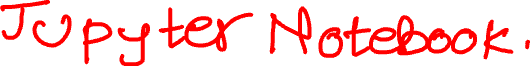 Jupyter Notebook.